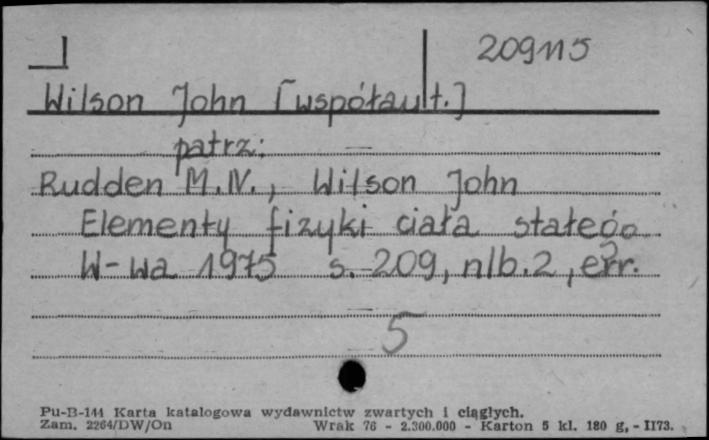 209115
Wilson John [współaut.]
patrz:
Rudden M.N., Wilson John
Elementy fizyki ciała stałego
W-wa 1975 s. 209, nlb. 2, err.
5
Pu-B-144 Karta katalogowa wydawnictw zwartych i ciągłych.
Zam. 2264/DW/On Wrak 76 - 2.300.000 - Karton 5 kl. 180 g, - II73.